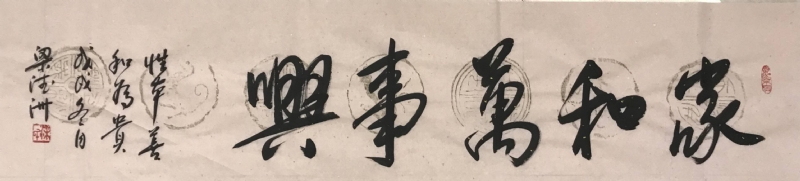 家和萬事興
性本善
和為貴
戊戌冬月
梁德洲